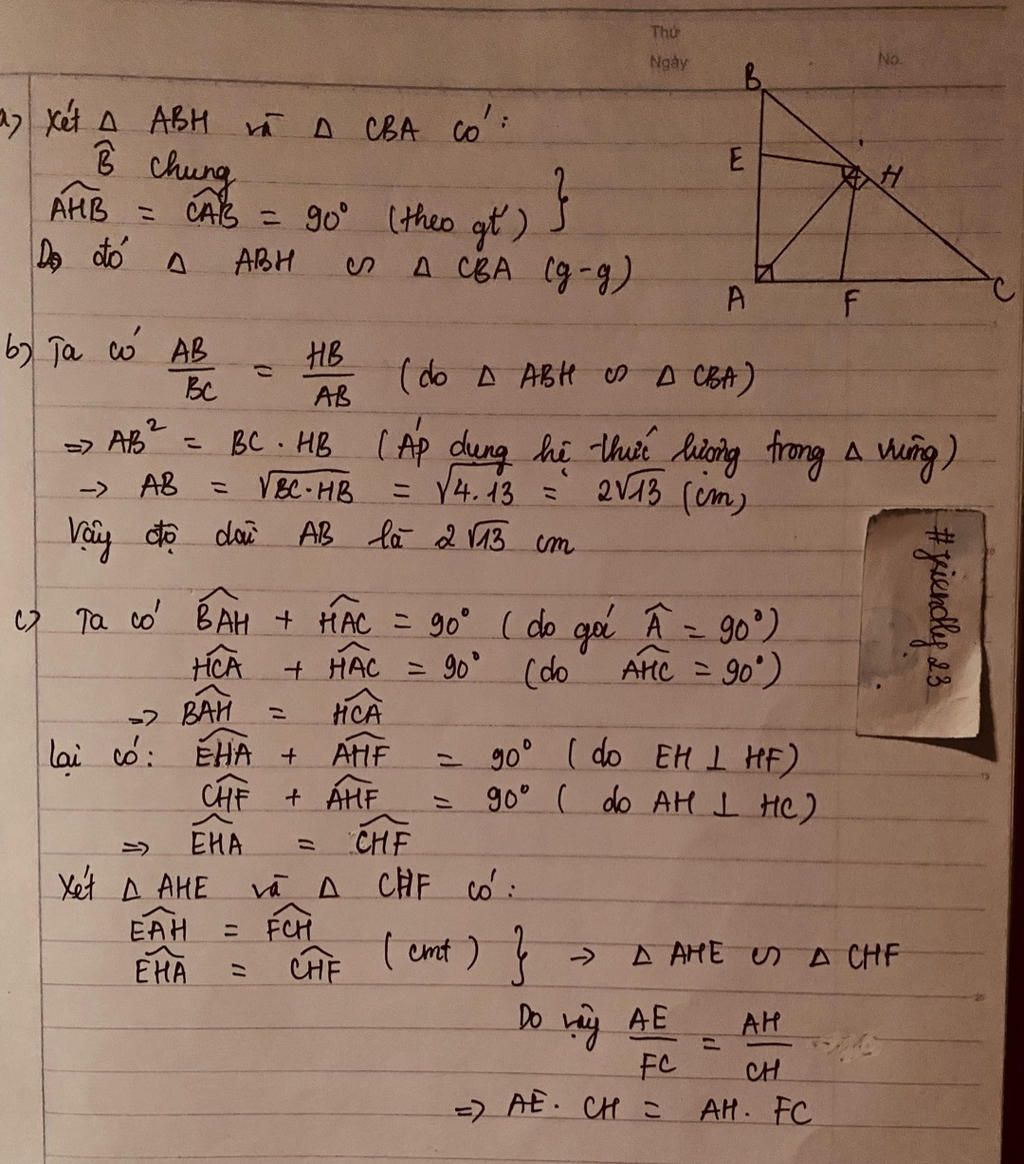 Thứ
Ngày
No.
a) Xét Δ ABH và Δ CBA có:
B̂ chung
AHB̂ = CAB̂ = 90° (theo gt) }
Do đó Δ ABH ∽ Δ CBA (g-g)
B
E
H
A
F
C
b) Ta có AB/BC = HB/AB (do Δ ABH ∽ Δ CBA)
=> AB² = BC . HB (Áp dụng hệ thức lượng trong Δ vuông)
-> AB = √BC.HB = √4.13 = 2√13 (cm)
Vậy độ dài AB là 2√13 cm
#friendly23
c) Ta có BAĤ + HAĈ = 90° (do góc Â = 90°)
HCÂ + HAĈ = 90° (do AHĈ = 90°)
=> BAĤ = HCÂ
Lại có: EHÂ + AHF̂ = 90° (do EH ⊥ HF)
CHF̂ + AHF̂ = 90° (do AH ⊥ HC)
=> EHÂ = CHF̂
Xét Δ AHE và Δ CHF có:
EAĤ = FCĤ
EHÂ = CHF̂ (cmt) } -> Δ AHE ∽ Δ CHF
Do vậy AE/FC = AH/CH
=> AE . CH = AH . FC